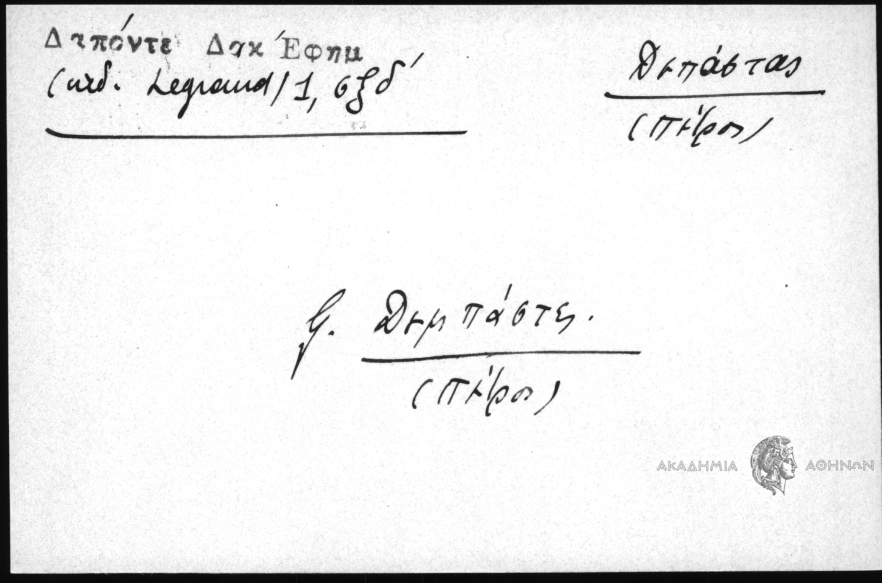 Δαπόντε Δακ Έφημ
(εκδ. Legrand) 1, σξδ΄
Δεπάστας
(Πέτρος)
Δεμπάστες.
(Πέτρος)
ΑΚΑΔΗΜΙΑ ΑΘΗΝΩΝ